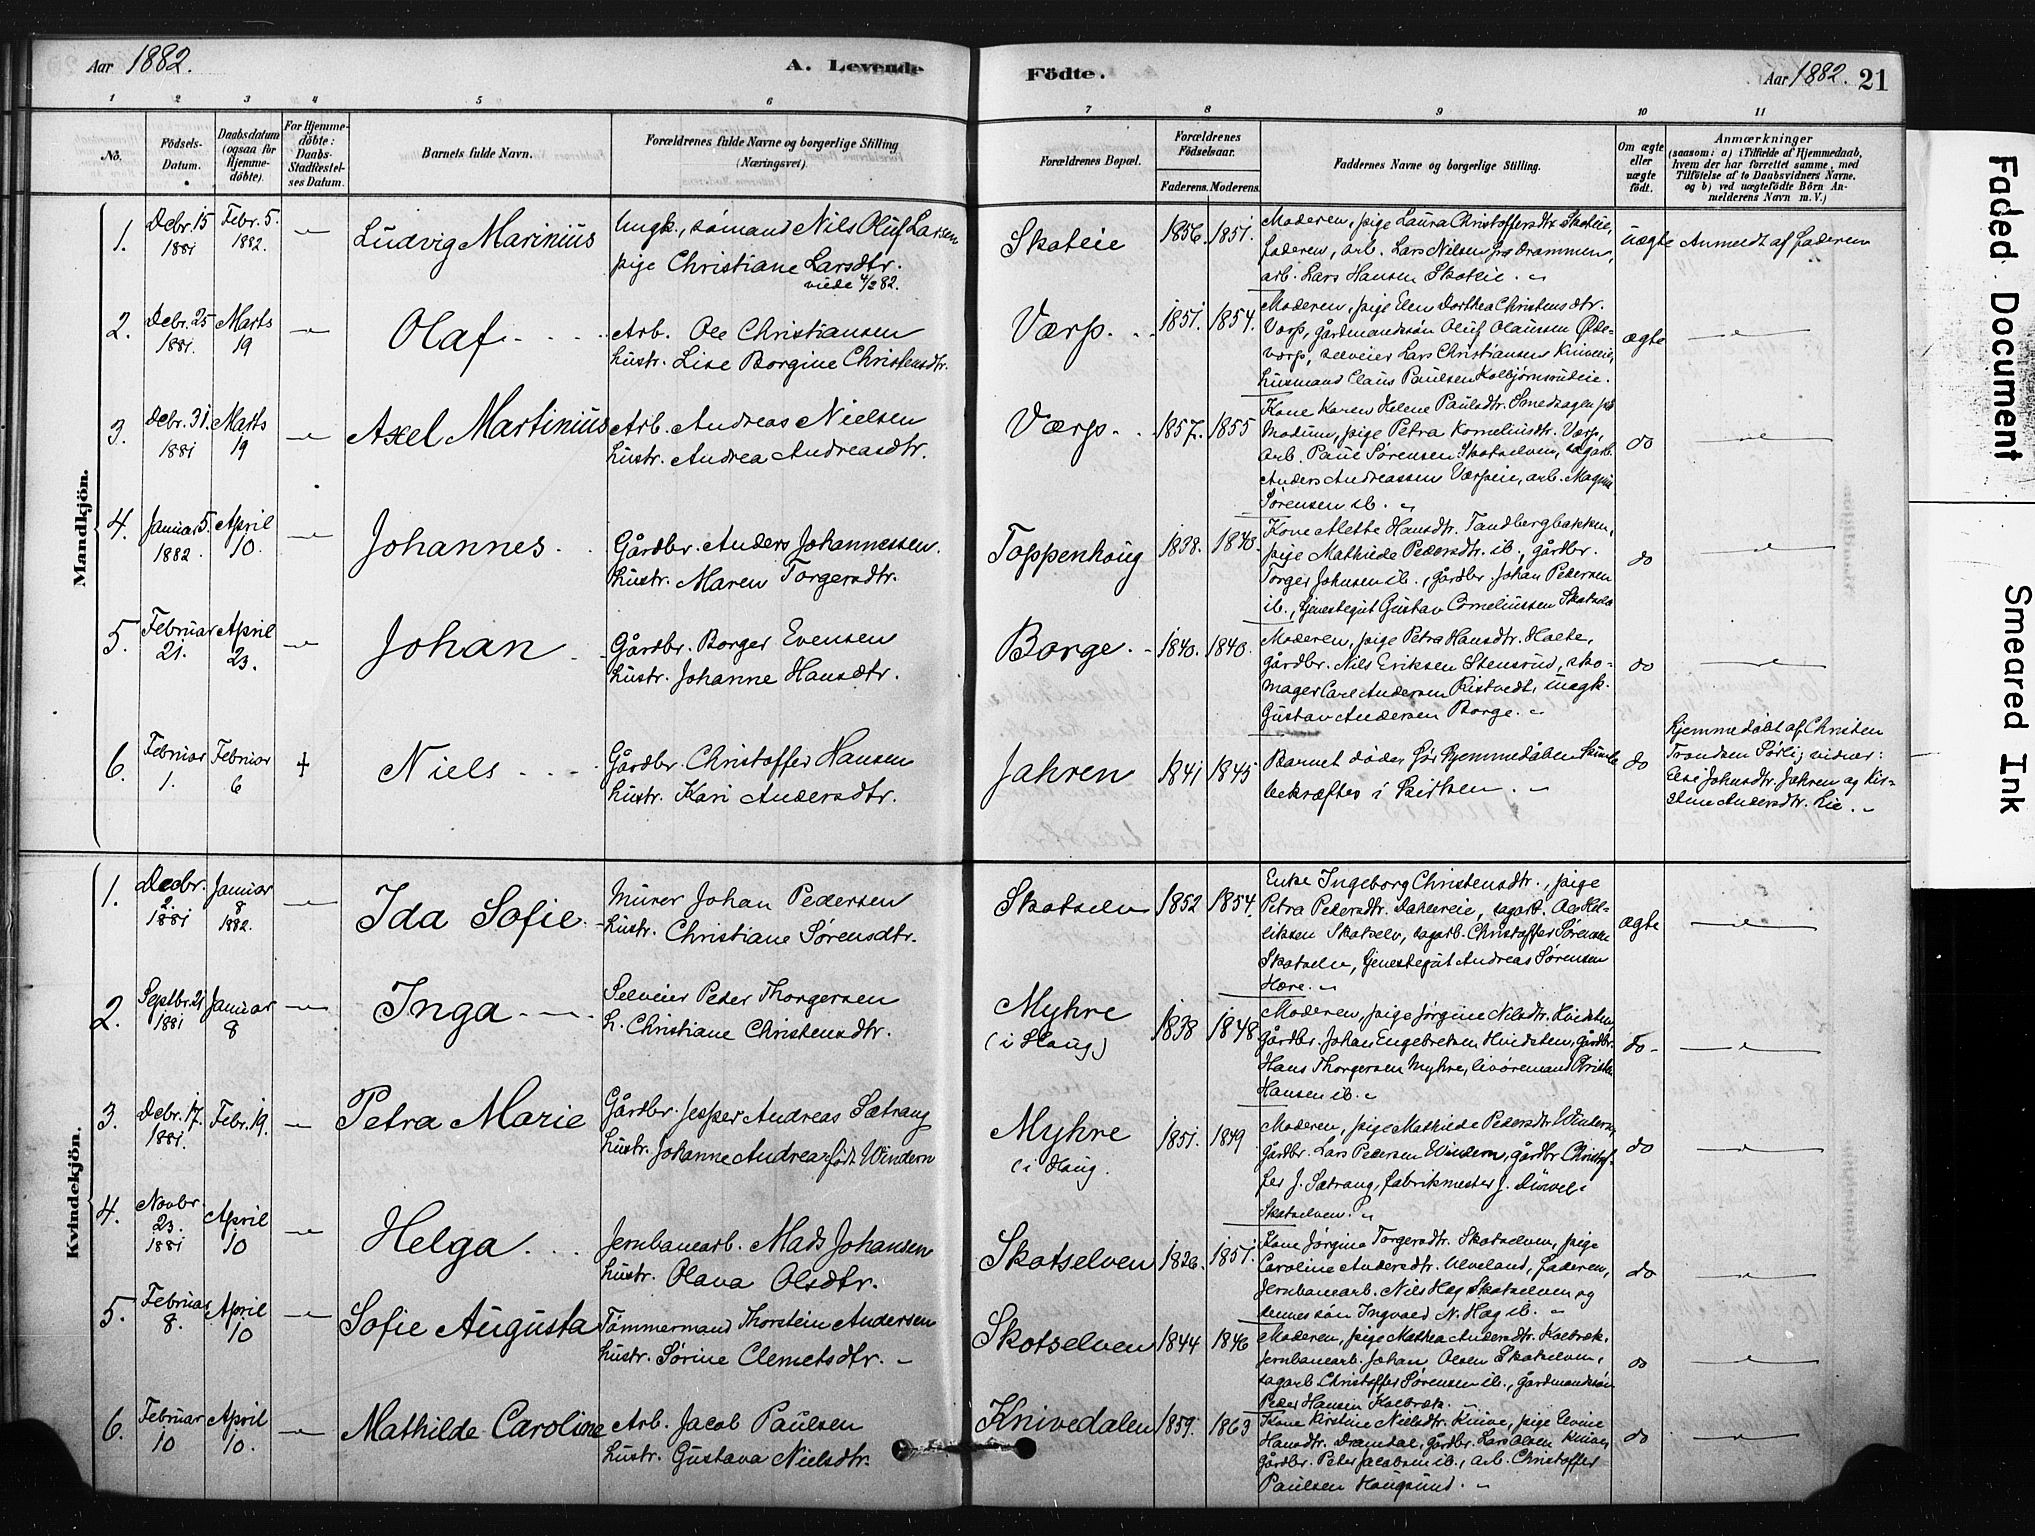 Aar 1882.
A. Levende
Födte.
Aar 1882. 21
1 2 3 4 5 6 7 8 9 10 11
No.
Födsels-Datum.
Daabsdatum (ogsaa for Hjemmedöbte).
For Hjemmedöbte: Daabs-Stadfestelses Datum.
Barnets fulde Navn.
Forældrenes fulde Navne og borgerlige Stilling
(Næringsvei).
Forældrenes Bopæl.
Forældrenes Födselsaar.
Faderens. Moderens.
Faddernes Navne og borgerlige Stilling.
Om ægte eller uægte födt.
Anmærkninger
(saasom: a) i Tilfælde af Hjemmedaab, hvem der har forrettet samme, med Tilföielse af to Daabsvidners Navne. og b) ved uægtefödte Börn Anmelderens Navn m. V.)
Mandkjön.
1. Debr. 15 1881 Febr. 5. 1882. Ludvig Marinius
Ungk., sömand Nils Oluf Larsen
pige Christiane Larsdtr.
viede 4/2 82.
Skotlie 1856. 1851.
Moderen, pige Laura Christoffersdtr. Skotlie,
faderen, arb. Lars Nilsen fra Drammen,
arb. Lars Hansen Skotlie.
uægte Anmeldt af faderen
2. Debr. 25 1881. Marts 19 Olaf
Arb. Ole Christiansen
hustr. Lise Borgine Christensdtr.
Værp. 1851. 1854.
Moderen, pige Elen Dorthea Christensdtr.
Værp, gårdmandssön Oluf Olaussen Øde-
værp, selveier Lars Christiansen Kniveeie,
husmand Claus Paulsen Kolbjørnsrudeie.
ægte
3. Debr. 31. 1881 Marts 19 Axel Martinius
Arb. Andreas Nielsen
hustr. Andrea Andreasdtr.
Værp. 1857. 1855
Kone Karen Helene Paulsdtr. Smedsagen på
Modum, pige Petra Korneliusdtr. Værp,
arb. Paul Sørensen Skotselven, sagarb.
Anders Andreassen Værpeie, arb. Magnus
Sørensen ib.
do
4. Januar 5. 1882. April 10. Johannes
Gårdbr. Anders Johannessen.
hustr. Maren Torgersdtr.
Toppenhoug 1838. 1843.
Kone Alette Hansdtr. Tandbergbakken,
pige Mathilde Pedersdtr. ib., gårdbr.
Torger Johnsen ib., gårdbr. Johan Pedersen
ib., tjenestegut Gustav Corneliussen Skotselv
do
5. Februar 21. April 23. Johan
Gårdbr. Borger Evensen
hustr. Johanne Hansdtr.
Borge 1840. 1840.
Moderen, pige Petra Hansdtr. Holte,
gårdbr. Nils Eriksen Stensrud, sko-
mager Carl Andersen Ristvedt, ungk.
Gustav Andersen Borge.
do
6. Februar 1. Februar 6 + Niels
Gårdbr. Christoffer Hansen
hustr. Kari Andersdtr.
Jahren 1841 1845
Barnet døde før hjemmedåben kunde
bekræftes i kirken.
do
hjemmedøbt af Christen
Trondsen Sørli; vidner:
Else Johnsdtr. Jahren og Kir-
stine Andersdtr. Lie.
Kvindekjön.
1. Decbr. 2. 1881 Januar 8 1882. Ida Sofie
Murer Johan Pedersen
hustr. Christiane Sørensdtr.
Skotselv 1852 1854.
Enke Ingeborg Christensdtr., pige
Petra Pedersdtr. Dahlereie, sagarb. Ole Hel-
liksen Skotselv, sagarb. Christoffer Sørensen
Skotselv, tjenestegut Andreas Sørensen
Hære.
ægte
2. Septbr. 21 1881 Januar 8 Inga
Selveier Peder Thorgersen
h. Christiane Christensdtr.
Myhre
(i Haug) 1838 1848.
Moderen, pige Jørgine Nilsdtr. Hvidsten,
gårdbr. Johan Engebretsen Hvidsten, gårdbr.
Hans Thorgersen Myhre, livøremand Christen
Hansen ib.
do
3. Debr. 17. 1881. Febr. 19. Petra Marie
Gårdbr. Jesper Andreas Sætrang
hustr. Johanne Andrea født Windern
Myhre
(i Haug. 1851. 1849
Moderen, pige Mathilde Pedersdtr. Windern,
gårdbr. Lars Pedersen Windern, gårdbr. Christof-
fer J. Sætrang, fabrikmester J.
Skotselven.
do
4. Novbr. 23. 1881 April 10 Helga
Jernbanearb. Mads Johansen
hustr. Olava Olsdtr.
Skotselven 1826. 1851.
Kone Jørgine Torgersdtr. Skotselven, pige
Caroline Andersdtr. Ulveland, faderen,
jernbanearb. Nils Hag Skotselven og
dennes søn Ingvald N. Hag ib.
do
5. Februar 8. April 10 Sofie Augusta
Tömmermand Thorstein Andersen
hustr. Sørine Clemetsdtr.
Skotselven 1844 1846
Moderen, pige Mathea Andersdtr. Kolbræk,
jernbanearb. Johan Olsen Skotselven,
sagarb. Christoffer Sørensen ib., gårdmandssön
Peder Hansen Kolbræk.
do
6. Februar 10 April 10. Mathilde Caroline
Arb. Jacob Paulsen
hustr. Gustava Nielsdtr.
Knivedalen 1859. 1863
Kone Kirstine Nielsdtr. Knive, pige Elvine
Hansdtr. Dramdal, gårdbr. Lars Olsen Knive,
gårdbr. Peter Jacobsen ib., arb. Christoffer
Paulsen Hougsund.
do
Faded Document
Smeared Ink